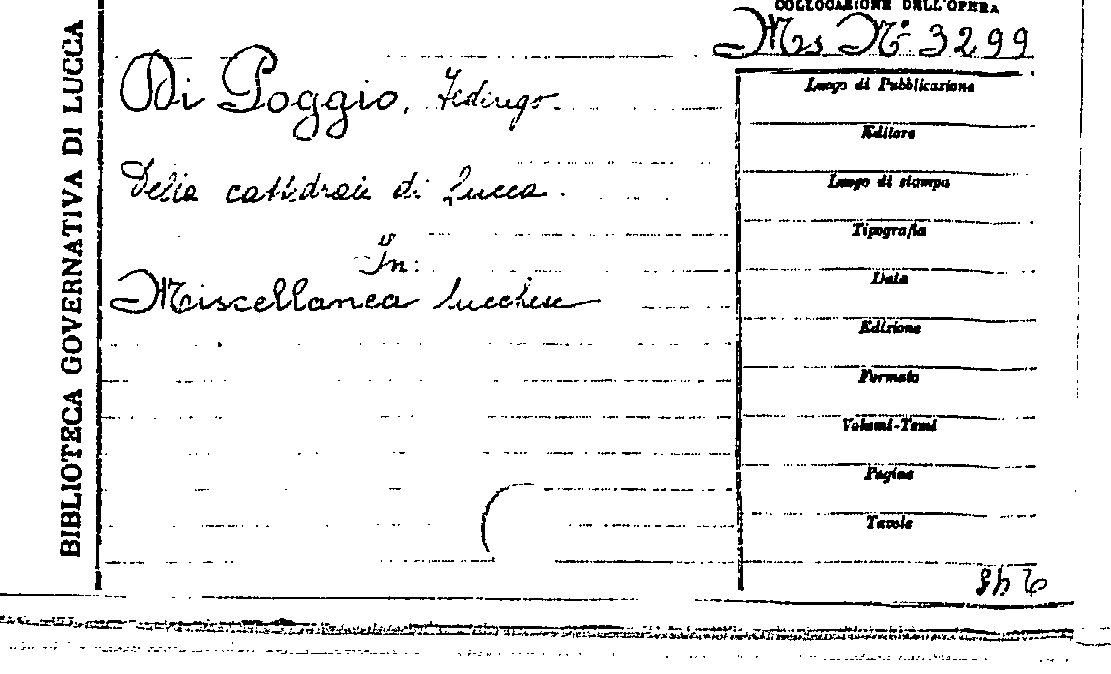 BIBLIOTECA GOVERNATIVA DI LUCCA
COLLOCAZIONE DELL'OPERA
Mss N° 3299
Di Poggio, Federigo.
Della cattedrale di Lucca.
In:
Miscellanea lucchese
Luogo di Pubblicazione
Editore
Luogo di stampa
Tipografia
Data
Edizione
Formato
Volumi-Tomi
Pagine
Tavole